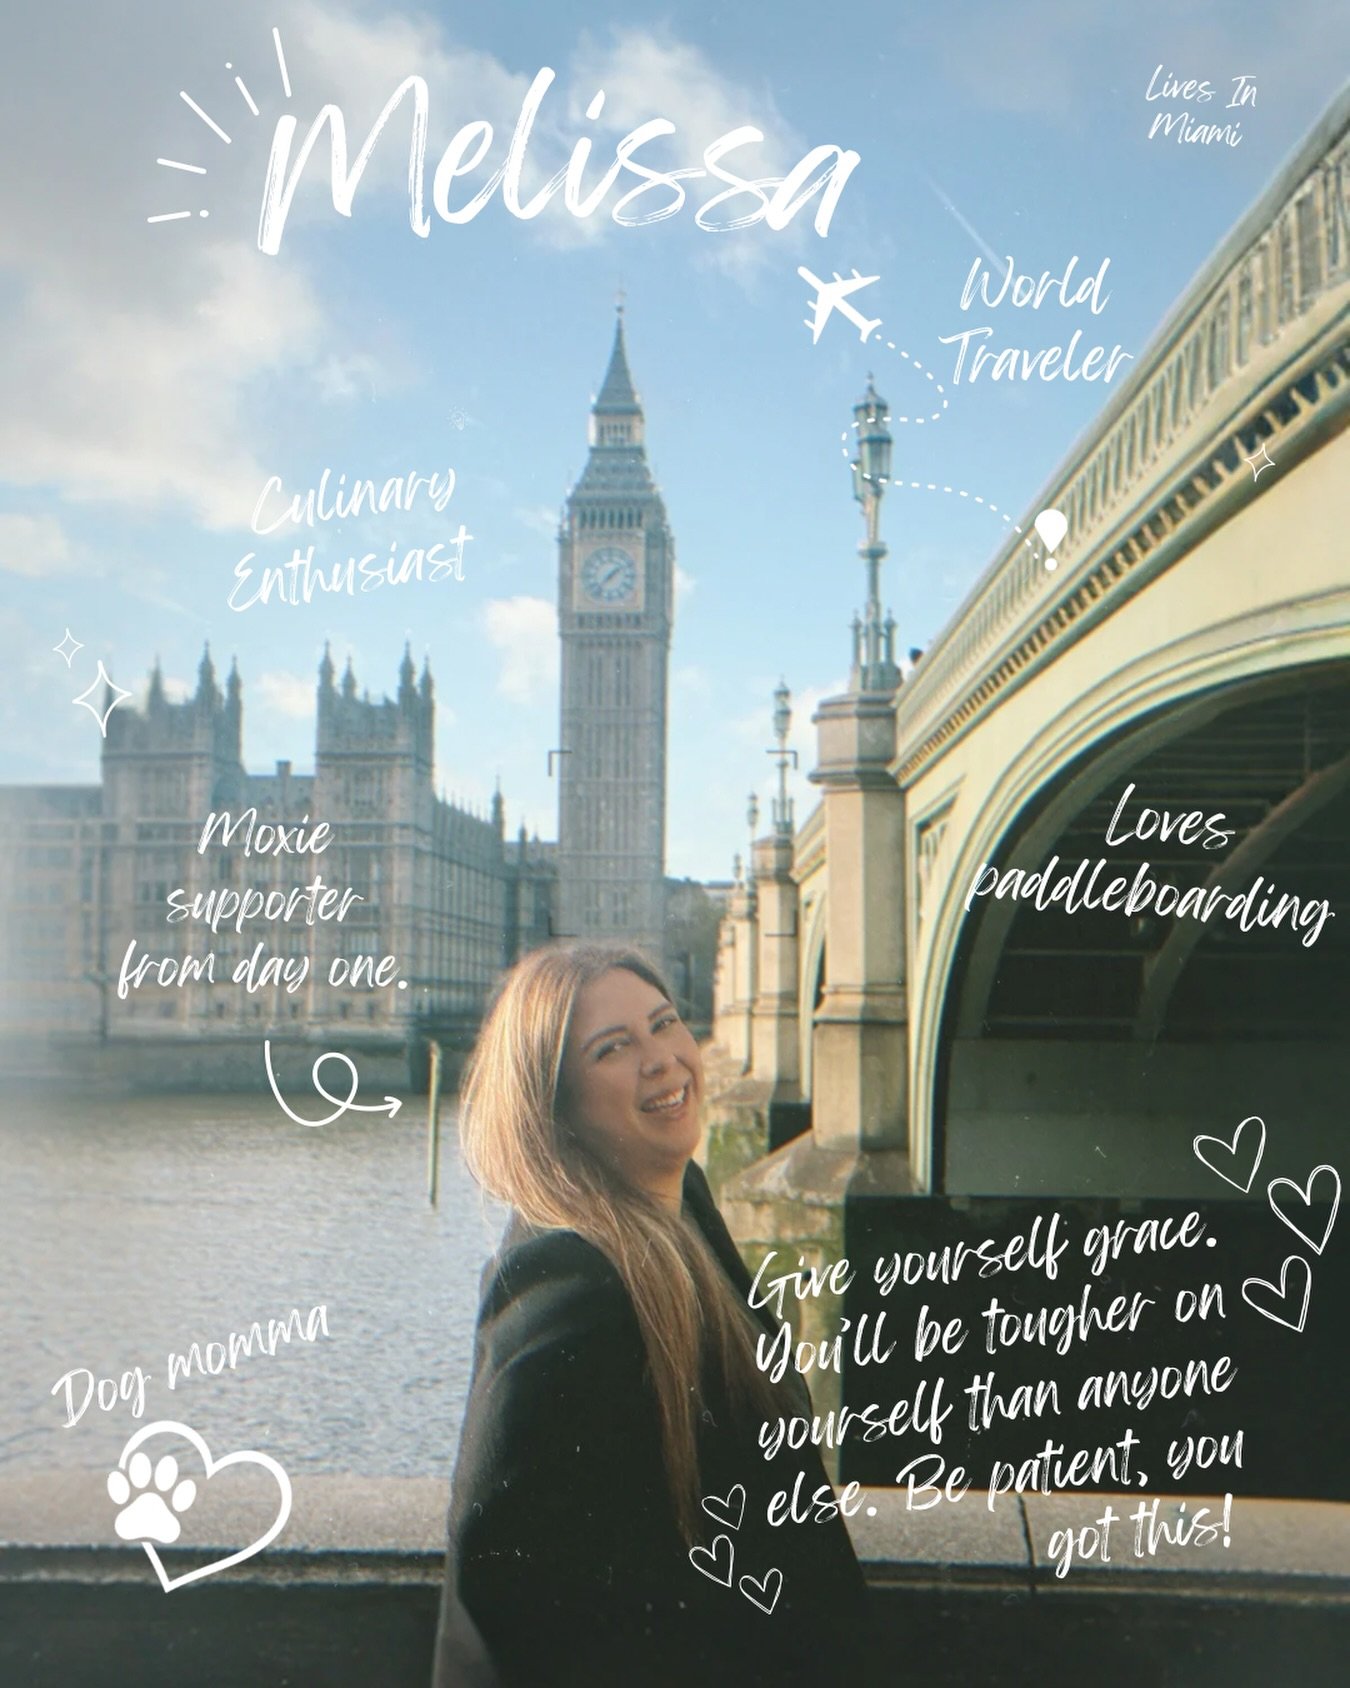 Melissa
Lives In
Miami
World
Traveler
Culinary
Enthusiast
Moxie
supporter
from day one.
Loves
paddleboarding
Give yourself grace.
You'll be tougher on
yourself than anyone
else. Be patient, you
got this!
Dog momma